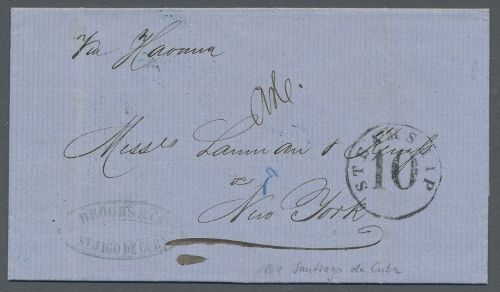 Via Havana
Messrs Lanman & Kemp
New York
STEAMSHIP
10
BROOKS & Co
ST JAGO DE CUBA
Santiago de Cuba